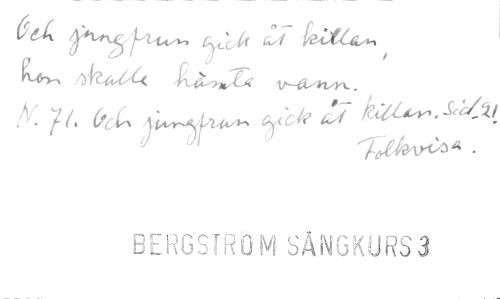 Och jungfrun gick åt killan,
hon skulle hämta vann.
N. 71. Och jungfrun gick åt killan. Sid. 21.
Folkvisa.
BERGSTRÖM SÅNGKURS 3